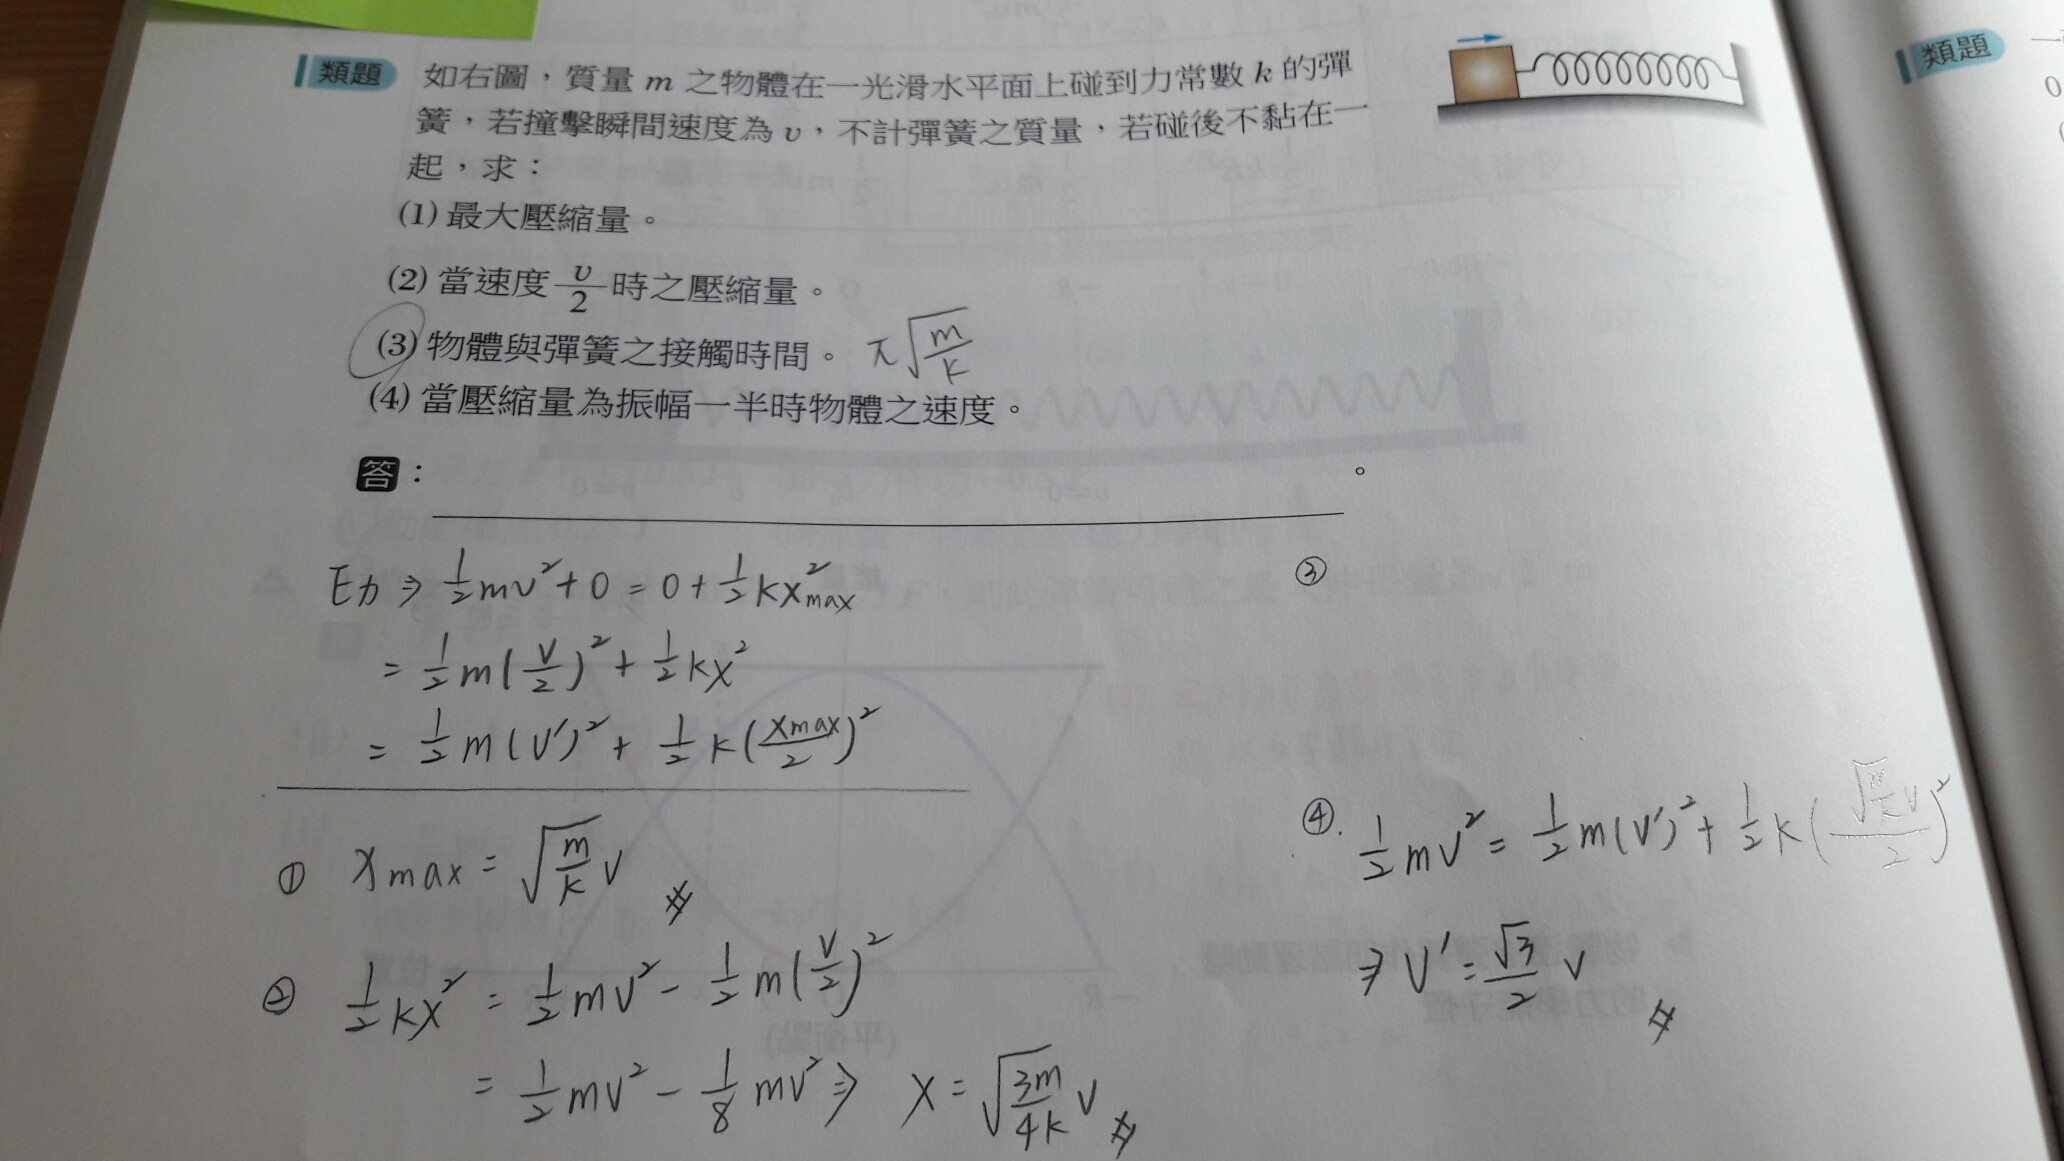 類題 如右圖，質量 m 之物體在一光滑水平面上碰到力常數 k 的彈
簧，若撞擊瞬間速度為 v，不計彈簧之質量，若碰後不黏在一
起，求：
(1) 最大壓縮量。
(2) 當速度 v/2 時之壓縮量。
(3) 物體與彈簧之接觸時間。 π√(m/k)
(4) 當壓縮量為振幅一半時物體之速度。
答：
。
⇒ ½mv² + 0 = 0 + ½kx²max
= ½m(v/2)² + ½kx²
= ½m(v')² + ½k(xmax/2)²
① xmax = √(m/k) v
② ½kx² = ½mv² - ½m(v/2)²
= ½mv² - ⅛mv² ⇒ x = √(3m/4k) v
③
④. ½mv² = ½m(v')² + ½k(√(m/k)v/2)²
⇒ v' = √3/2 v
類題